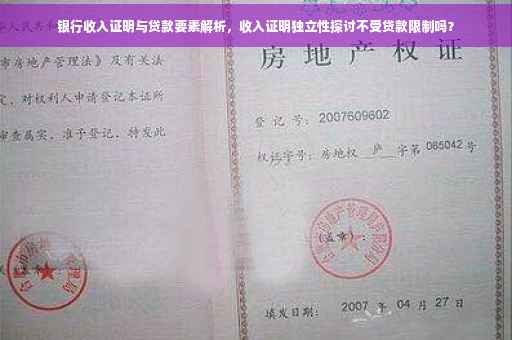 银行收入证明与贷款要素解析，收入证明独立性探讨不受贷款限制吗？
市房地产管理法》及有关法
定，对权利人申请登记本证所
审查属实，准予登记，特发此
房地产权
登记号：2007609602
权证字号：房地权 庐 字第 065042 号
(盖章)：
填发日期： 2007 年 04 月 27 日